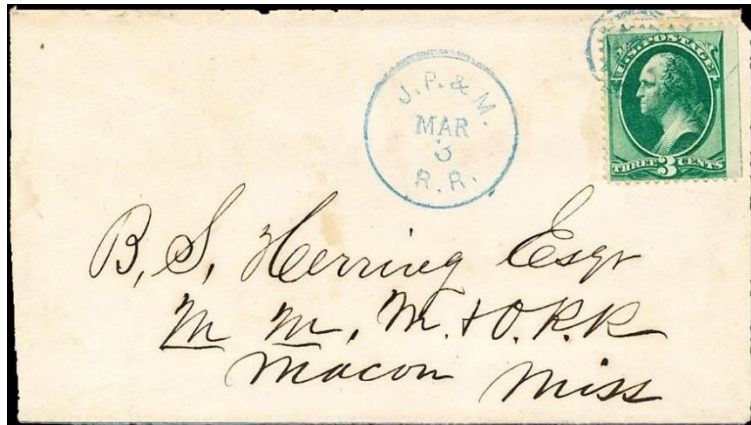 J. P. & M.
MAR
3
R. R.
U.S. POSTAGE
THREE 3 CENTS
B. S. Herring Esqr
M M, M. & O. R R
Macon Miss